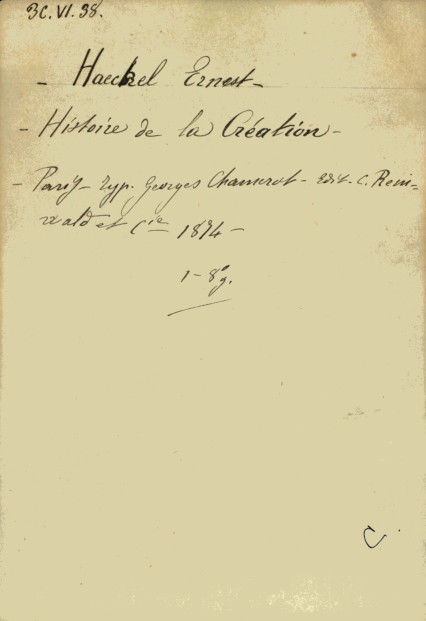 3C.VI.38.
- Haeckel Ernest -
- Histoire de la Création -
- Paris - Typ. Georges Chamerot - Edit. C. Rein=
wald et Cie 1874 -
1 - 8º g.
C.